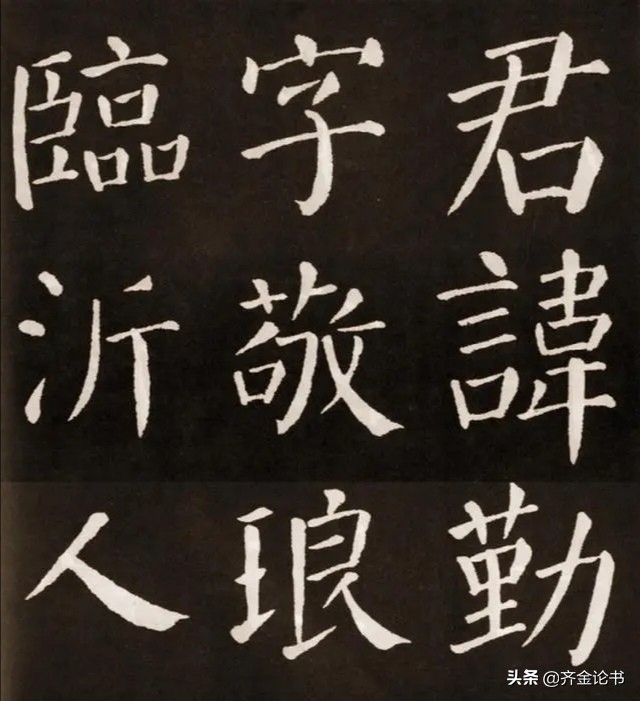 君諱勤
字敬琅
臨沂人
头条 @齐金论书